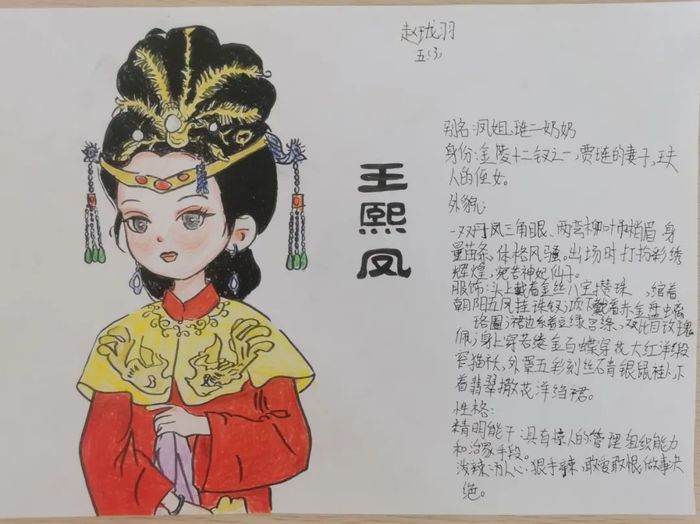 赵珑羽
五(3)
王熙凤
别名:凤姐、琏二奶奶
身份:金陵十二钗之一,贾琏的妻子,王夫
人的侄女。
外貌:
一双丹凤三角眼、两弯柳叶吊梢眉身
量苗条、体格风骚。出场时打扮彩绣
辉煌,宛若神妃仙子。
服饰:头上戴着金丝八宝攒珠,绾着
朝阳五凤挂珠钗;项下戴着赤金盘螭
璎珞圈;裙边系着豆绿宫绦,双比目玫瑰
佩;身上穿着缕金百蝶穿花大红洋缎
窄裉袄,外罩五彩刻丝石青银鼠褂;下
着翡翠撒花洋绉裙。
性格:
精明能干:具有惊人的管理组织能力
和治家手段。
泼辣:为人心狠手辣,敢爱敢恨,做事决
绝。